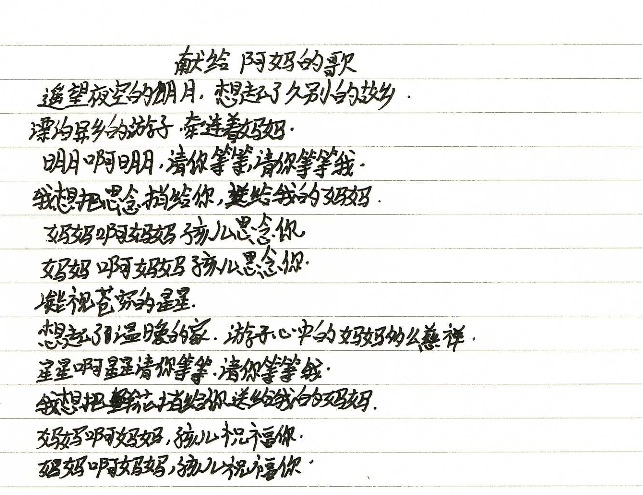 献给阿妈的歌
遥望夜空的明月.想起了久别的故乡.
漂泊异乡的游子牵连着妈妈.
明月啊明月,请你等等,请你等等我.
我想把思念捎给你,送给我的妈妈.
妈妈啊妈妈孩儿思念你
妈妈啊妈妈孩儿思念你.
凝视苍穹的星星.
想起了温暖的家.游子心中的妈妈多么慈祥.
星星啊星星请你等等.请你等等我.
我想把鲜花捎给你送给我的妈妈.
妈妈啊妈妈,孩儿祝福你.
妈妈啊妈妈,孩儿祝福你.